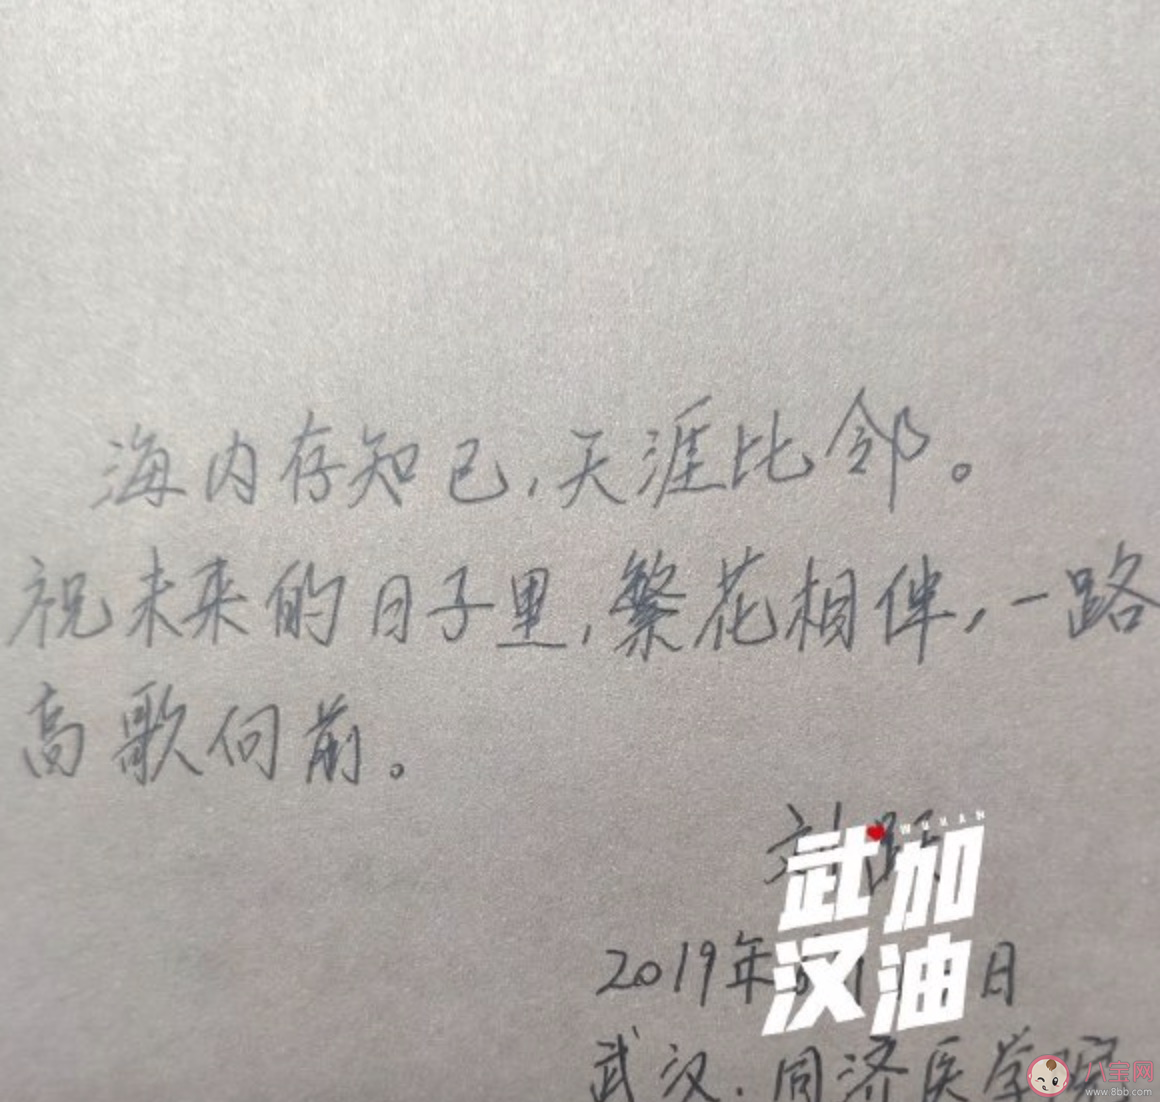 海内存知己,天涯比邻。
祝未来的日子里,繁花相伴,一路
高歌向前。
WUHAN
武加
汉油
2019年
日
武汉.同济医学院
八宝网
www.8bb.com